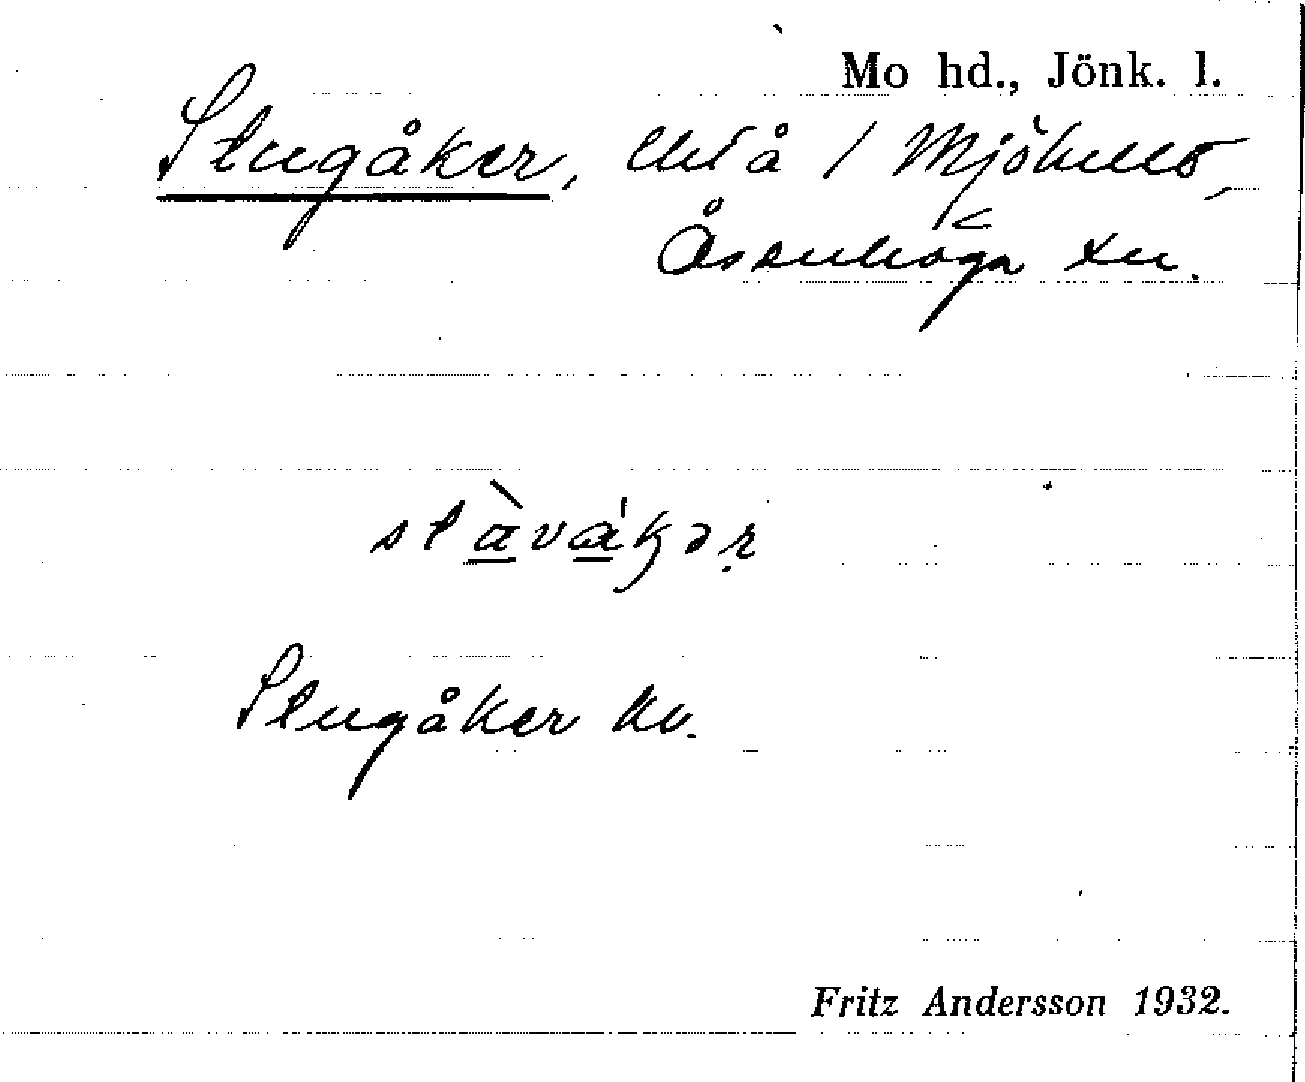 Mo hd., Jönk. l.
Slugåker, ller å / Mjöhult,
Åsenhöga sn.
slàvákər
Slugåker kv.
Fritz Andersson 1932.